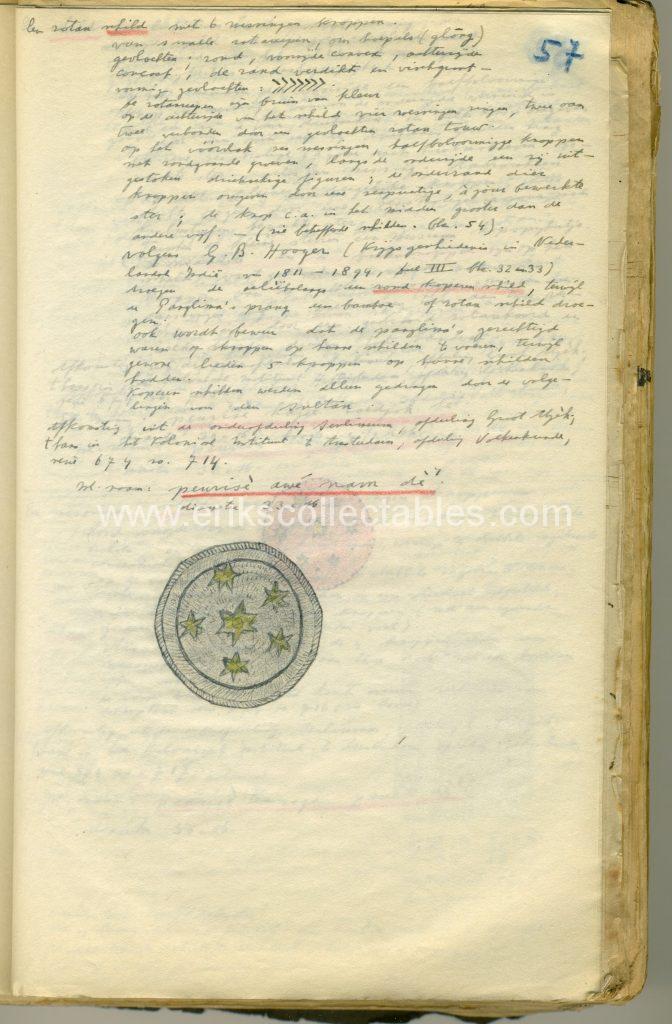 57
Een rotan schild met 6 messingen knoppen.
van smalle rotanreepen, om hoepels (glông)
gevlochten; rond, voorzijde convex, achterzijde
concaaf; de rand verdikt en vischgraat-
vormig gevlochten:
De rotanreepen zijn bruin van kleur
op de achterzijde van het schild vier messingen ringen, twee aan
twee verbonden door een gevlochten rotan touw.
op het vóórvlak zes messingen, halfbolvormige knoppen
met rondgaande groeven, langs de onderzijde een rij uit-
gestoken driehoekige figuren; de onderrand dier
knoppen omgeven door eene zespuntige, à jour bewerkte
ster; de knop c.a. in het midden grooter dan de
andere vijf. — (zie betreffende schilden. blz. 54).
volgens G. B. Hooyer (Krijgsgeschiedenis in Neder-
landsch Indië, van 1811 – 1894, deel III blz. 32 en 33)
droegen de oelèëbalangs een rond koperen schild, terwijl
de Panglima's prang een bamboe of rotan schild droe-
gen.
ook wordt beweerd dat de panglima's gerechtigd
waren 7 knoppen op hunne schilden te voeren, terwijl
gewone lieden 5 knoppen op hunne schilden
hadden.
Koperen schilden werden alleen gedragen door de volge-
lingen van den sultan.
Afkomstig uit de onderafdeeling Seulimeum, afdeeling Groot Atjeh;
thans in het Koloniaal Instituut te Amsterdam, afdeeling Volkenkunde,
serie 674 no. 714.
inl. naam: peurisè awé nam dè'.
www.erikscollectables.com